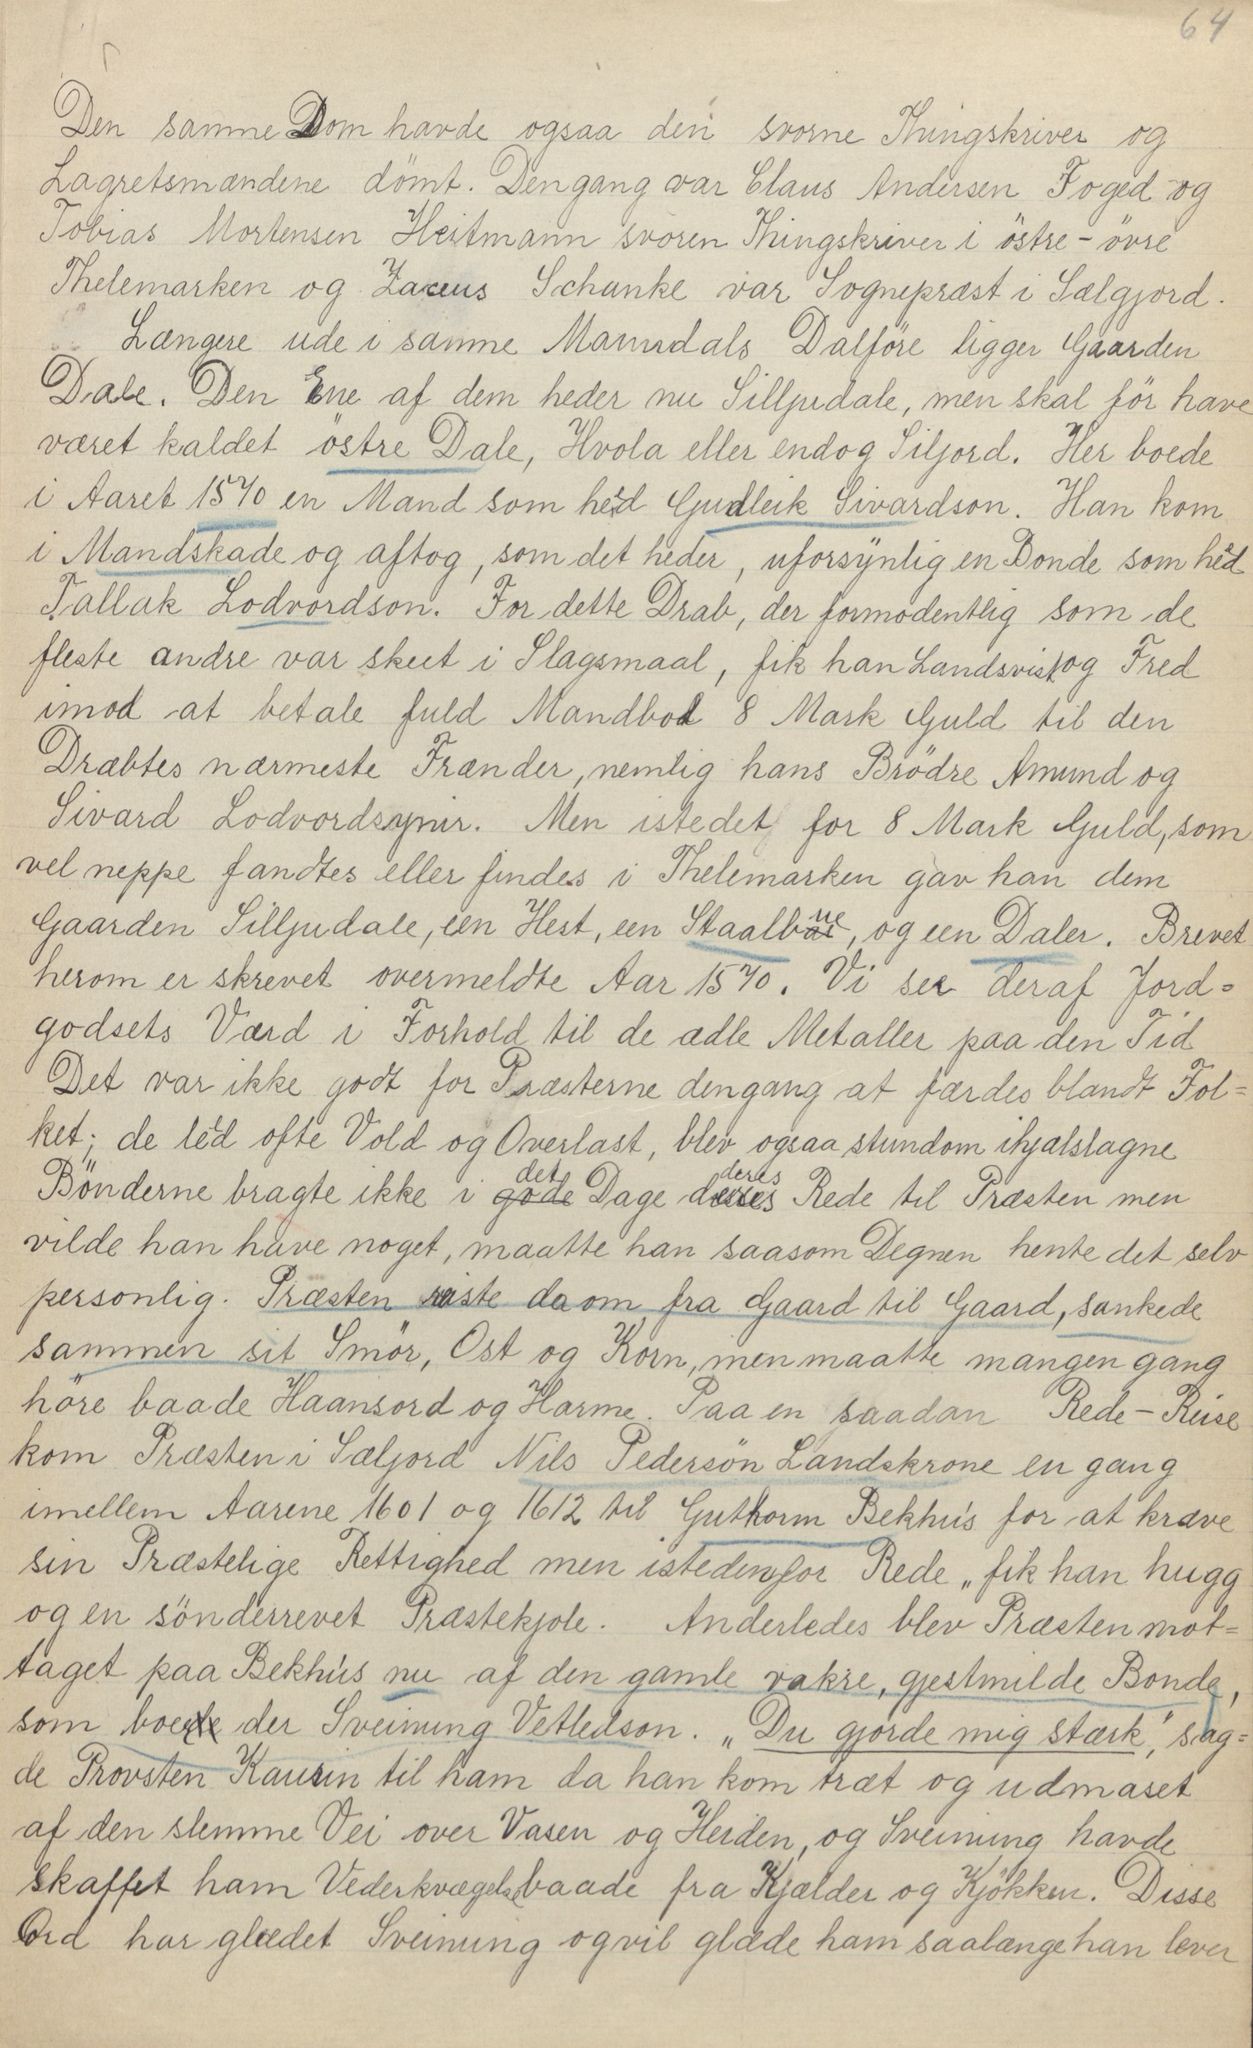 64
Den samme Dom havde ogsaa den svorne Thingskriver og
Lagretsmændene dömt. Dengang var Claus Andersen Foged og
Tobias Mortensen Heitmann svoren Thingskriver i östre-övre
Thelemarken og Zaceus Schanke var Sognepræst i Sælgjord.
Længere ude i samme Dalföre ligger Gaarden
Dale. Den Ene af dem heder nu Silljudale, men skal för have
været kaldet östre Dale, Hvola eller endog Siljord. Her boede
i Aaret 1570 en Mand som hed Gudleik Sivardson. Han kom
i Mandskade og aftog, som det heder, uforsynlig en Bonde som hed
Tallak Lodvordson. For dette Drab, der formodentlig som de
fleste andre var skeet i Slagsmaal, fik han Landsvist og Fred
imod at betale fuld Mandbod 8 Mark Guld til den
Dræbtes nærmeste Frænder, nemlig hans Brödre Amund og
Sivard Lodvordsynir. Men istedet for 8 Mark Guld, som
vel neppe fandtes eller findes i Thelemarken gav han dem
Gaarden Silljudale, een Hest, een Staalbue, og een Daler. Brevet
herom er skrevet overmeldte Aar 1570. Vi see deraf Jord=
godsets Værd i Forhold til de ædle Metaller paa den Tid
Det var ikke godt for Præsterne dengang at færdes blandt Fol=
ket; de led ofte Vold og Overlast, blev ogsaa stundom ihjælslagne
Bönderne bragte ikke i gode det Dage deres deres Rede til Præsten men
vilde han have noget, maatte han saasom Degnen hente det selv
personlig. Præsten reiste da om fra Gaard til Gaard, sankede
sammen sit Smör, Ost og Korn, men maatte mangen gang
höre baade Haansord og Harme. Paa en saadan Rede-Reise
kom Præsten i Sæljord Nils Pedersön Landskrone en gang
imellem Aarene 1601 og 1612 til Guthorm Bekhús for at kræve
sin Præstelige Rettighed men istedenfor Rede „ fik han hugg
og en sönderrevet Præstekjole. Anderledes blev Præsten mot=
taget paa Bekhús nu af den gamle vakre, gjestmilde Bonde,
som boede der Sveinung Vetledson. „Du gjorde mig stærk", sag=
de Provsten Kaurin til ham da han kom træt og udmaset
af den slemme Vei over Vasen og Heiden, og Sveinung havde
skaffet ham Vederkvægelse baade fra Kjælder og Kjökken. Disse
Ord har glædet Sveinung og vil glæde ham saalænge han lever